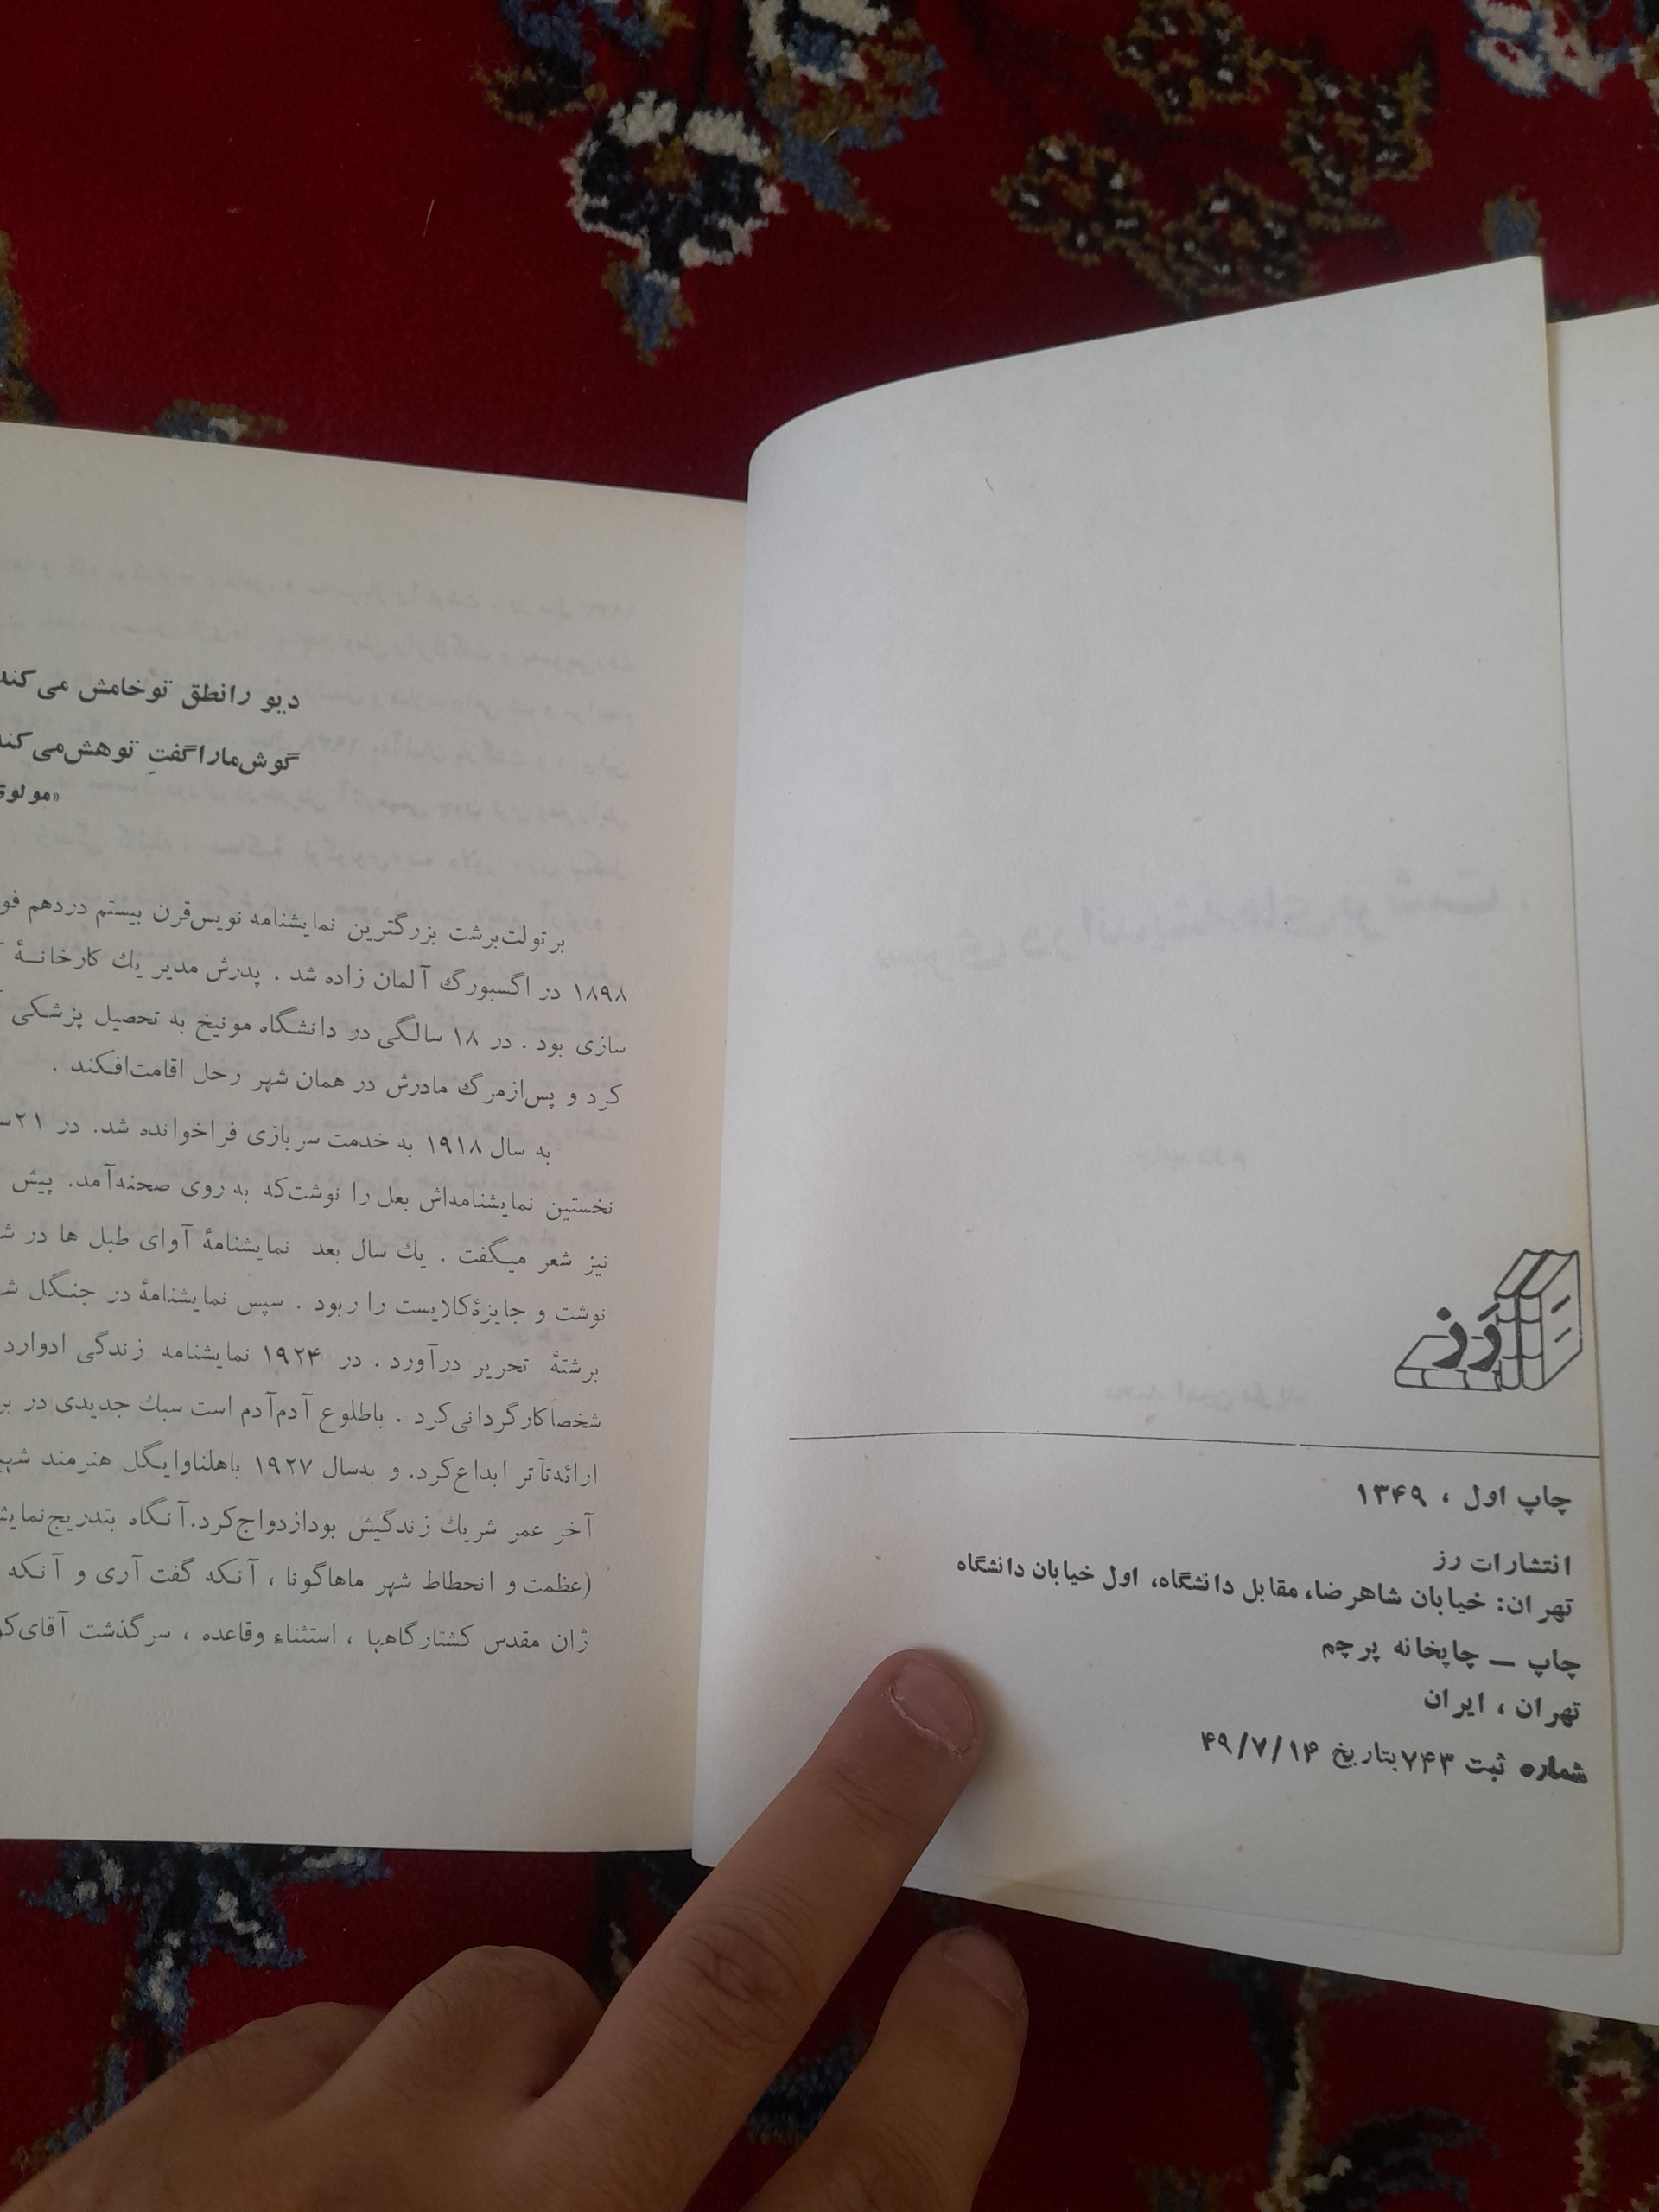 رز
چاپ اول ، ۱۳۴۹
انتشارات رز
تهران: خیابان شاهرضا، مقابل دانشگاه، اول خیابان دانشگاه
چاپ — چاپخانه پرچم
تهران ، ایران
شماره ثبت ۷۴۳ بتاریخ ۴۹/۷/۱۴
دیو را نطق تو خامش می‌کند
گوش ما را گفتِ تو هش می‌کند
برتولت برشت بزرگترین نمایشنامه نویس قرن بیستم در دهم
۱۸۹۸ در اگسبورگ آلمان زاده شد . پدرش مدیر یك کارخانـۀ
سازی بود . در ۱۸ سالگی در دانشگاه مونیخ به تحصیل پزشکی
کرد و پس‌از مرگ مادرش در همان شهر رحل اقامت افکند .
به سال ۱۹۱۸ به خدمت سربازی فراخوانده شد. در ۲۱
نخستین نمایشنامه‌اش بعل را نوشت که به روی صحنه آمد. پیش
نیز شعر میگفت . یك سال بعد نمایشنامۀ آوای طبل ها در
نوشت و جایزۀ کلایست را ربود . سپس نمایشنامۀ در جنگل
برشتۀ تحریر درآورد . در ۱۹۲۴ نمایشنامه زندگی ادوارد
شخصاً کارگردانی کرد . با طلوع آدم آدم است سبك جدیدی در
ارائه تآتر ابداع کرد. و به‌سال ۱۹۲۷ با هلنا وایگل هنرمند
آخر عمر شریك زندگیش بود ازدواج کرد. آنگاه بتدریج
(عظمت و انحطاط شهر ماهاگونا ، آنکه گفت آری و آنکه
ژان مقدس کشتارگاهها ، استثناء وقاعده ، سرگذشت آقای